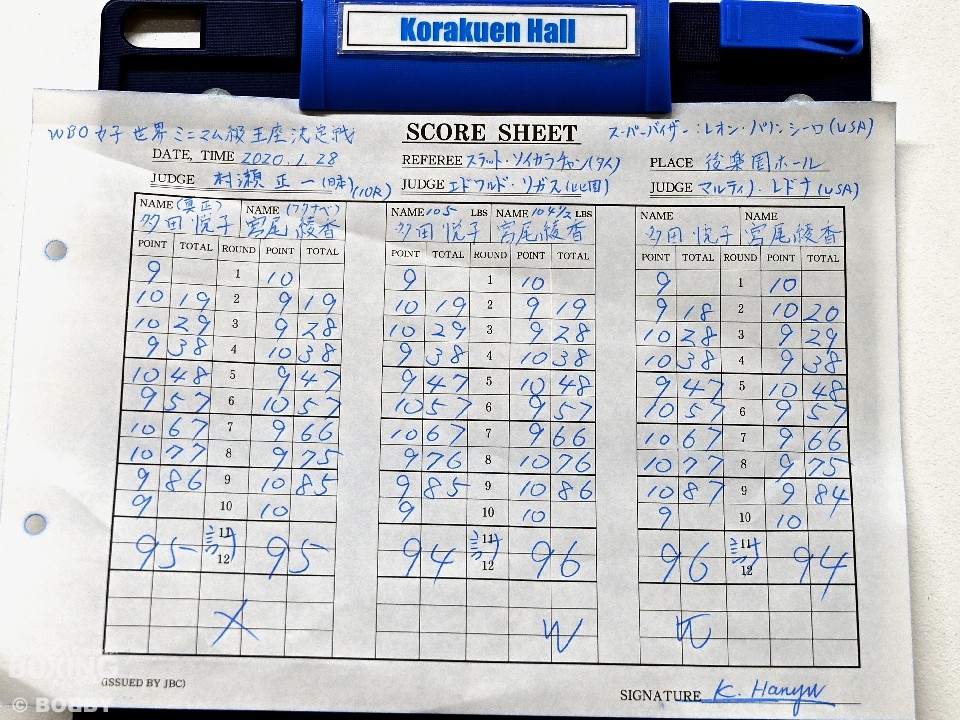 Korakuen Hall
WBO女子世界ミニマム級王座決定戦 SCORE SHEET スーパーバイザー:レオン・パノンシーロ(USA)
DATE, TIME 2020.1.28 REFEREE スラット・ソイカラチャン(タイ) PLACE 後楽園ホール
JUDGE 村瀬正一(日本)(10R) JUDGE エドワルド・リガス(比国) JUDGE マルティン・レドナ(USA)
NAME (真正) NAME (ワタナベ) NAME 105 LBS NAME 104½ LBS NAME NAME
多田悦子 宮尾綾香 多田悦子 宮尾綾香 多田悦子 宮尾綾香
POINT TOTAL ROUND POINT TOTAL POINT TOTAL ROUND POINT TOTAL POINT TOTAL ROUND POINT TOTAL
9 1 10 9 1 10 9 1 10
10 19 2 9 19 10 19 2 9 19 9 18 2 10 20
10 29 3 9 28 10 29 3 9 28 10 28 3 9 29
9 38 4 10 38 9 38 4 10 38 10 38 4 9 38
10 48 5 9 47 9 47 5 10 48 9 47 5 10 48
9 57 6 10 57 10 57 6 9 57 10 57 6 9 57
10 67 7 9 66 10 67 7 9 66 10 67 7 9 66
10 77 8 9 75 9 76 8 10 76 10 77 8 9 75
9 86 9 10 85 9 85 9 10 86 10 87 9 9 84
9 10 10 9 10 10 9 10 10
95 計 11 95 94 計 11 96 96 計 11 94
12 12 12
X W W
(ISSUED BY JBC) SIGNATURE K. Hanyu
BOXING
© BOBBY